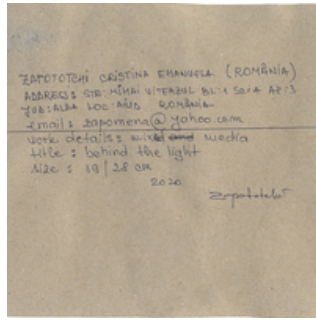 ZAPOTOTCHI CRISTINA EMANUELA (ROMÂNIA)
ADDRESS: STR: MIHAI VITEAZUL BL: 1 SC: A AP: 3
JUD: ALBA LOC: AIUD ROMÂNIA
email: zapomena@yahoo.com
work details: mixed media
title: behind the light
size: 19/28 cm
2020